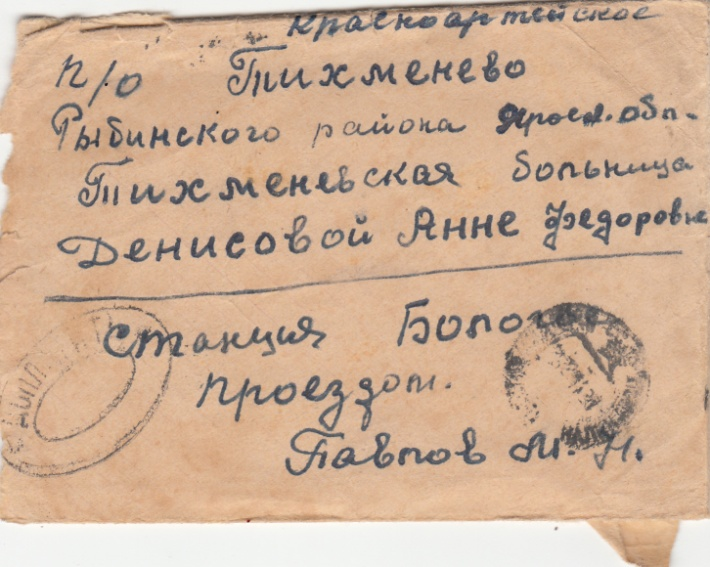 Красноартейское
п/о Тихменево
Рыбинского района Яросл. обл.
Тихменевская больница
Денисовой Анне Федоровне
Станция Бологое
проездом.
Павлов М. Н.